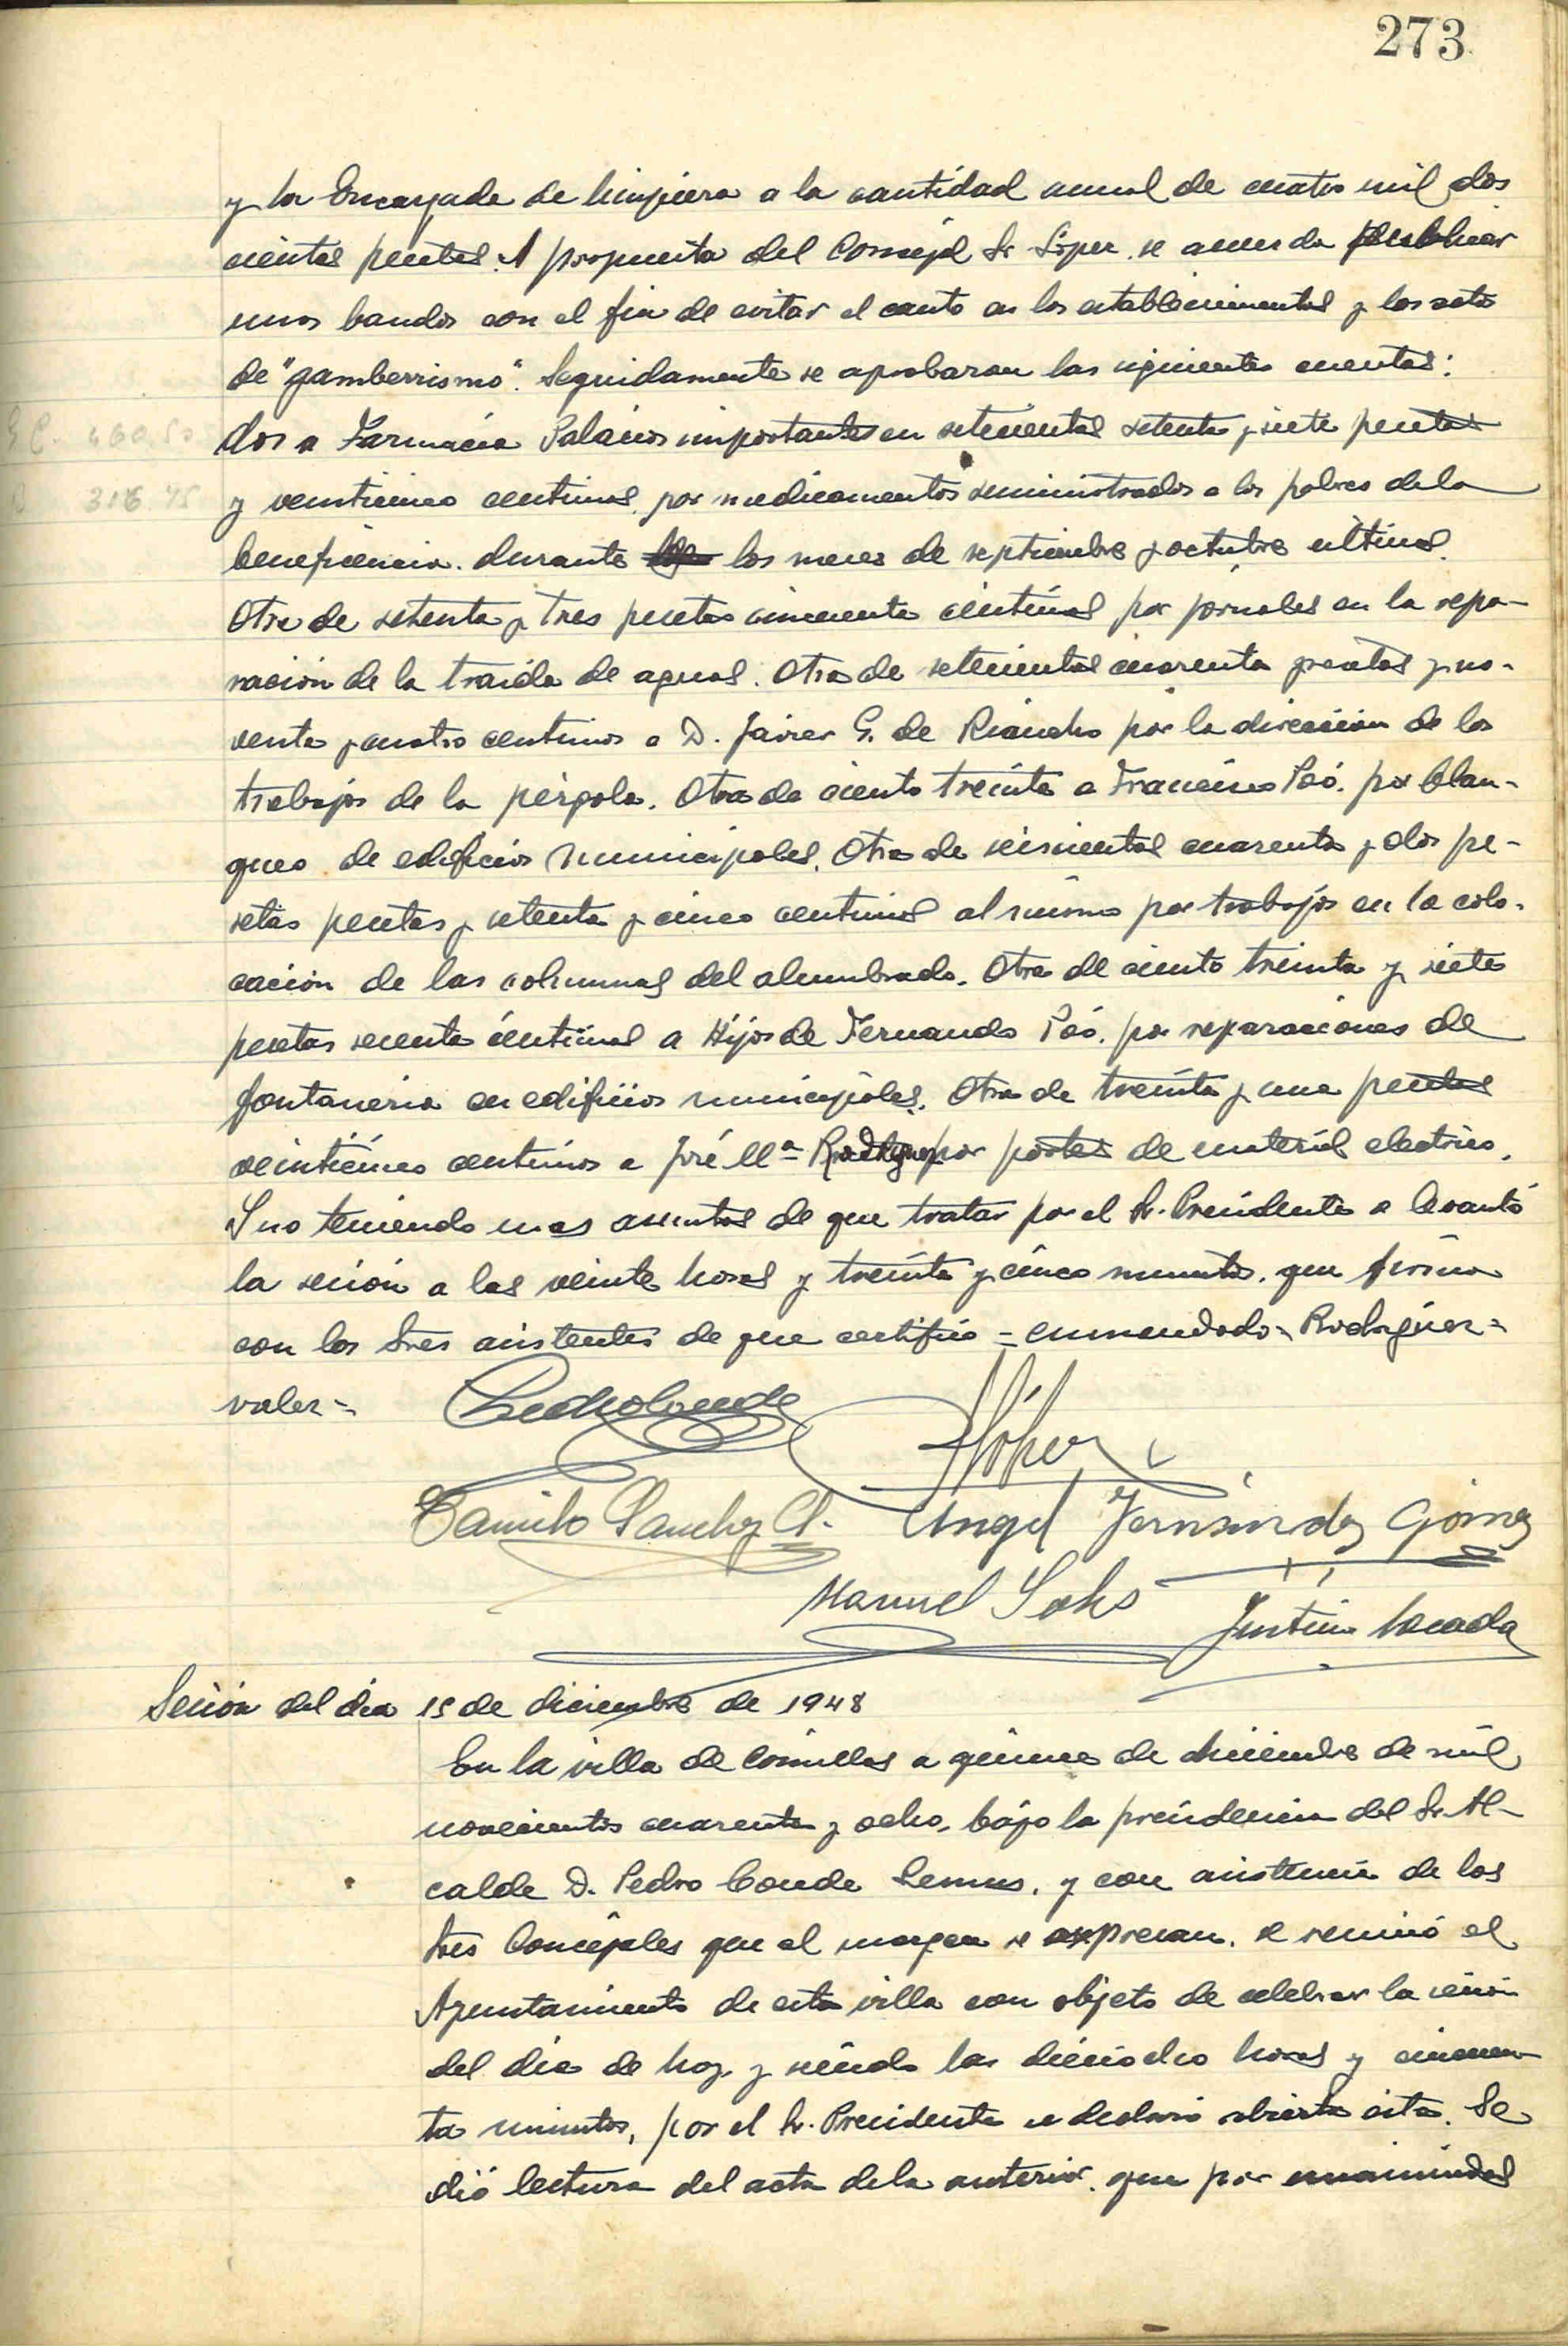 273
y la Encargada de limpieza a la cantidad anual de cuatro mil dos
cientas pesetas. A propuesta del Concejal Sr López se acuerda publicar
unos bandos con el fin de evitar el canto en los establecimientos y los actos
de "gamberrismo". Seguidamente se aprobaron las siguientes cuentas:
dos a Farmacia Palacios importantes en setecientas setenta y siete pesetas
460.50
316.75
y veinticinco centimos, por medicamentos suministrados a los pobres de la
beneficencia durante los meses de septiembre y octubre ultimos.
Otra de setenta y tres pesetas cincuenta centimos por jornales en la repa-
ración de la traida de aguas. Otra de setecientas cuarenta pesetas y no-
venta y cuatro centimos a D. Javier G. de Riancho por la dirección de los
trabajos de la pérgola. Otra de ciento treinta a Francisco Poó. por blan-
queo de edificios municipales. Otra de seiscientas cuarenta y dos pe-
setas pesetas y setenta y cinco centimos al mismo por trabajos en la colo-
cación de las columnas del alumbrado. Otra de ciento treinta y siete
pesetas sesenta centimos a Hijos de Fernando Poó. por reparaciones de
fontaneria en edificios municipales. Otra de treinta y una pesetas
veinticinco centimos a José Mª Rodriguez por portes de material electrico.
Y no teniendo mas asuntos de que tratar por el Sr. Presidente se levantó
la sesión a las veinte horas y treinta y cinco minutos, que firma
con los Sres asistentes de que certifico = enmendado = Rodriguez =
vale =
Pedro Conde
López
Camilo Sanchez A.
Angel Fernández Gómez
Manuel
Justin
Sesión del dia 15 de diciembre de 1948
En la villa de Comillas a quince de diciembre de mil
novecientos cuarenta y ocho, bajo la presidencia del Sr. Al-
calde D. Pedro Conde Lemus, y con asistencia de los
Sres Concejales que al margen se expresan, se reunió el
Ayuntamiento de esta villa con objeto de celebrar la sesión
del dia de hoy y siendo las dieciocho horas y cincuen-
ta minutos, por el Sr. Presidente se declaró abierta esta. Se
dió lectura del acta de la anterior, que por unanimidad